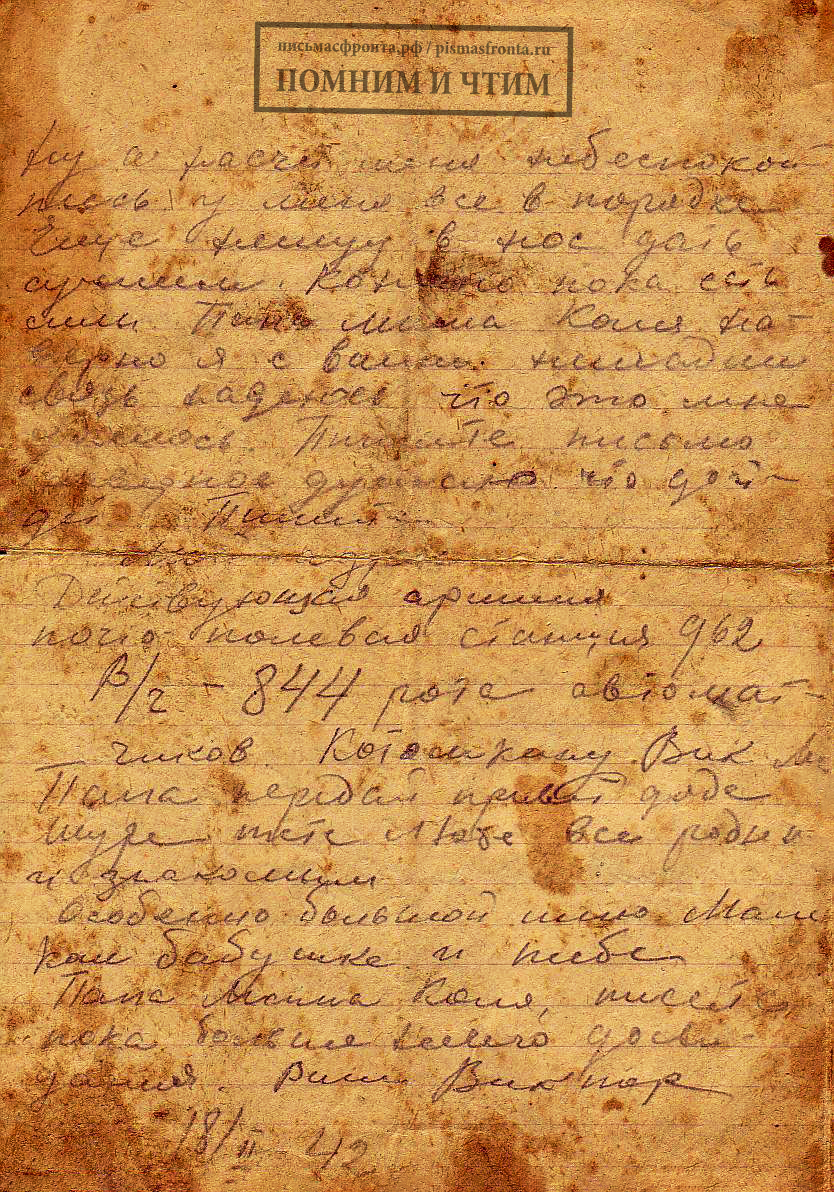 письмасфронта.рф / pismasfronta.ru
ПОМНИМ И ЧТИМ
Ну а насчет меня небеспокой
тесь у меня все в порядке
Еще немцу в нос дать
сумеем. Конечно пока есть
силы. Папа Мама Коля на-
верно я с вами
связь надеюсь что это мне
удалось. Пишите письмо
наверное думаю что дой-
дет. Пишите
адрес
Действующая армия
почто-полевая станция 962
В/ч - 844 рота автомат-
чиков. Вик
Папа передай привет дяде
Шуре тете все родным
и знакомым
Особенно большой шлю Мам
кам бабушке и тебе
Папа Мама Коля, пишите
пока больше нечего досви-
дания. Ваш Виктор
18/II 42